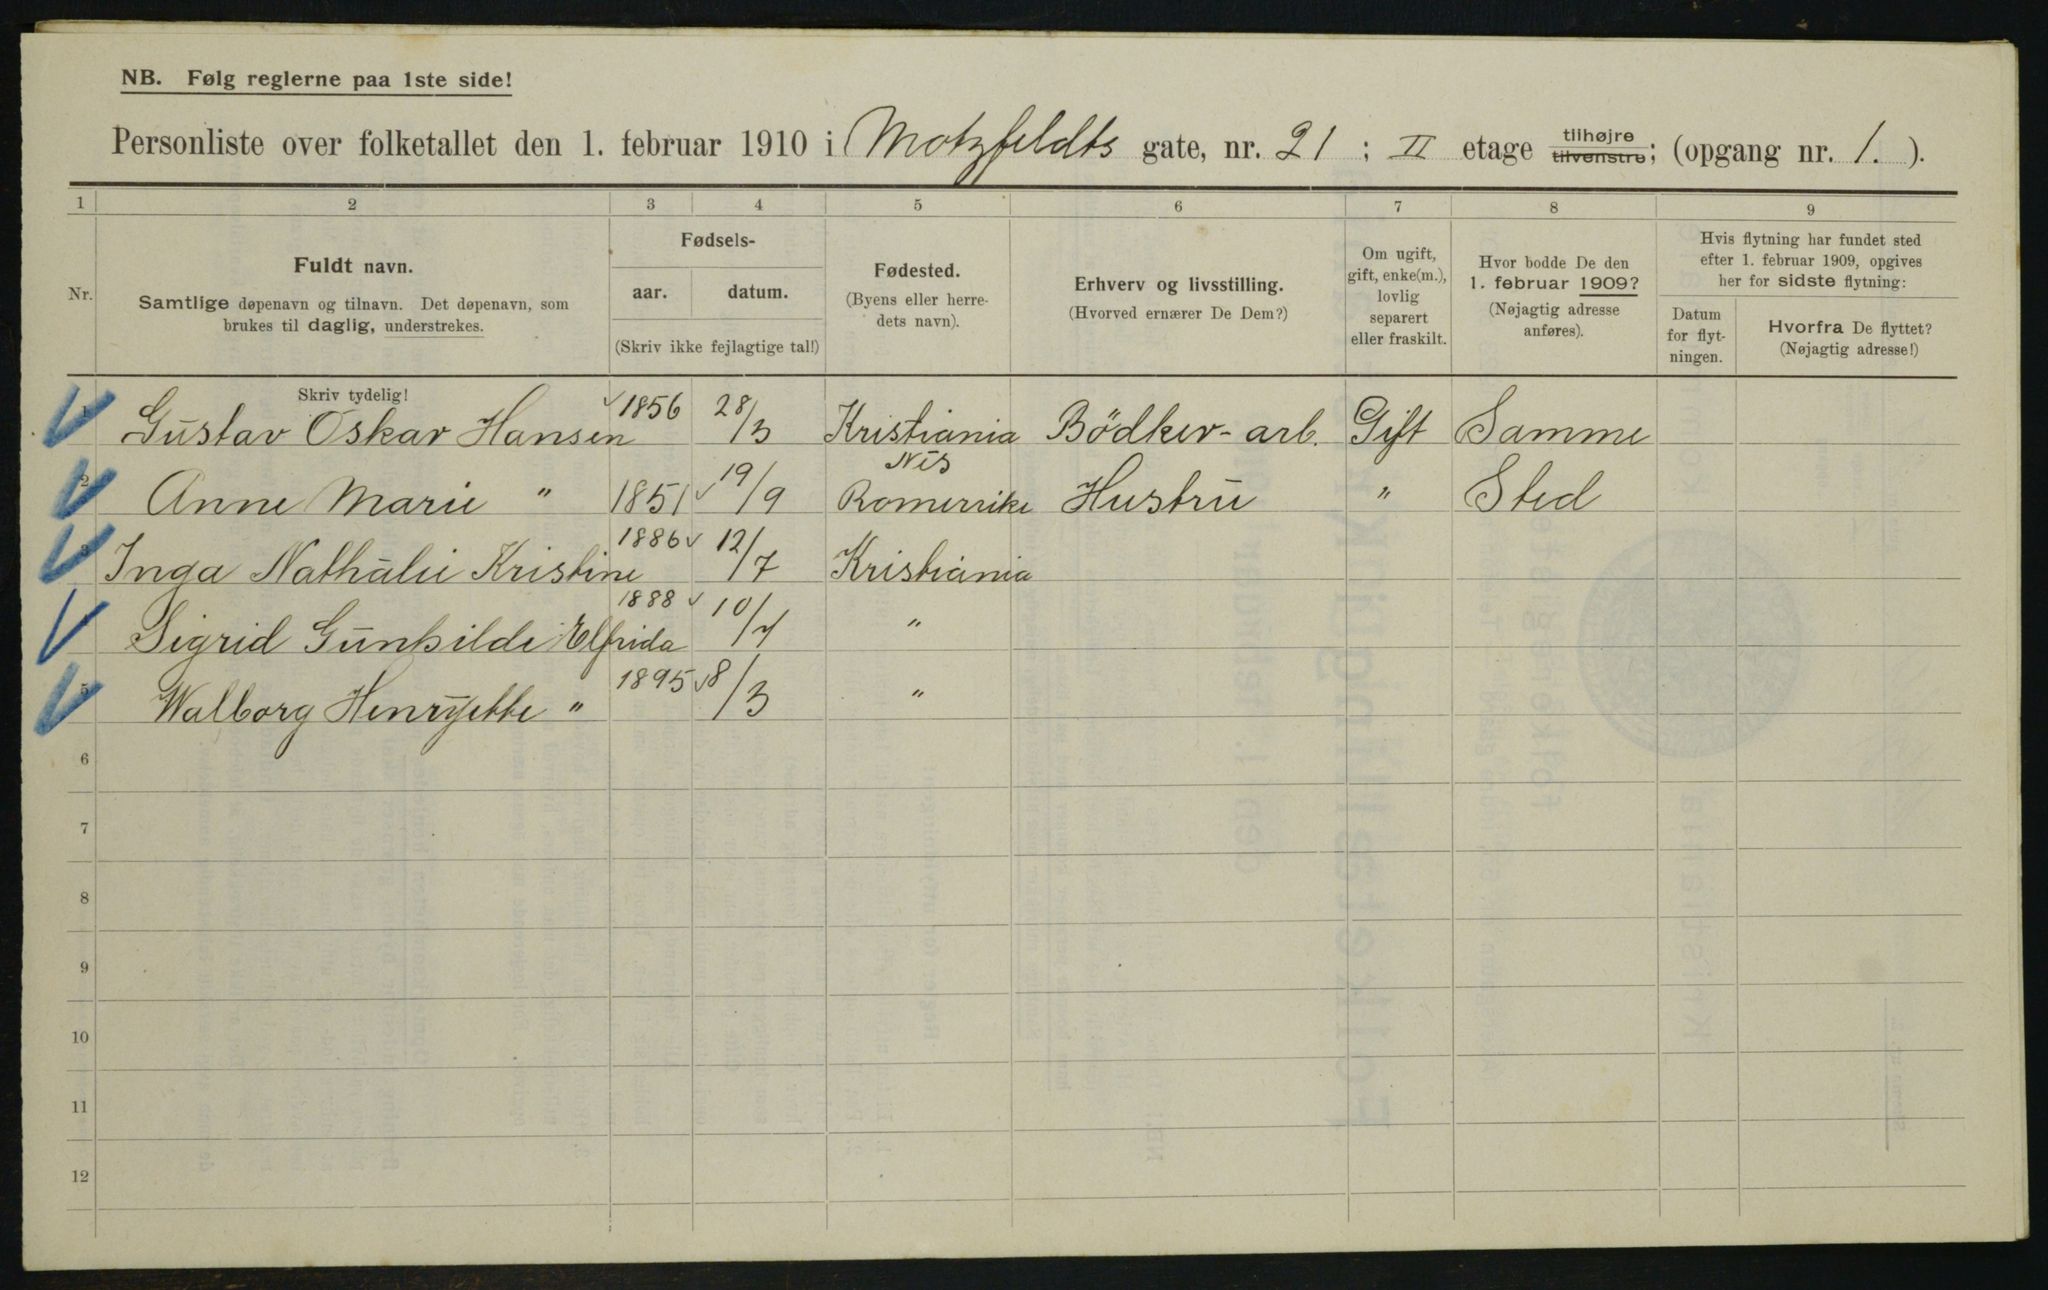 NB. Følg reglerne paa 1ste side!
Personliste over folketallet den 1. februar 1910 i Motzfeldts gate, nr. 21 ; II etage tilhøjre tilvenstre; (opgang nr. 1. ).
1 2 3 4 5 6 7 8 9
Nr.
Fuldt navn.
Samtlige døpenavn og tilnavn. Det døpenavn, som
brukes til daglig, understrekes.
Fødsels-
aar. datum.
(Skriv ikke fejlagtige tal!)
Fødested.
(Byens eller herre-
dets navn).
Erhverv og livsstilling.
(Hvorved ernærer De Dem?)
Om ugift,
gift, enke(m.),
lovlig
separert
eller fraskilt.
Hvor bodde De den
1. februar 1909?
(Nøjagtig adresse
anføres).
Hvis flytning har fundet sted
efter 1. februar 1909, opgives
her for sidste flytning:
Datum
for flyt-
ningen.
Hvorfra De flyttet?
(Nøjagtig adresse!)
Skriv tydelig!
1 Gustav Oskar Hansen 1856 28/3 Kristiania Bödker-arb. Gift Samme
2 Anne Marie " 1851 19/9 Nes Romerrike Hustru " Sted
3 Inga Nathalie Kristine 1886 12/7 Kristiania
Sigrid Gunhilde Elfrida 1888 10/7 "
5 Walborg Henryette " 1895 8/3 "
6
7
8
9
10
11
12